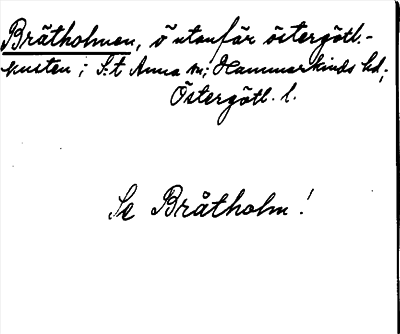 Bråtholmen, ö utanför östergötl.-
kusten i S:t Anna sn; Hammarkinds hd,
Östergötl. l.
Se Bråtholm!